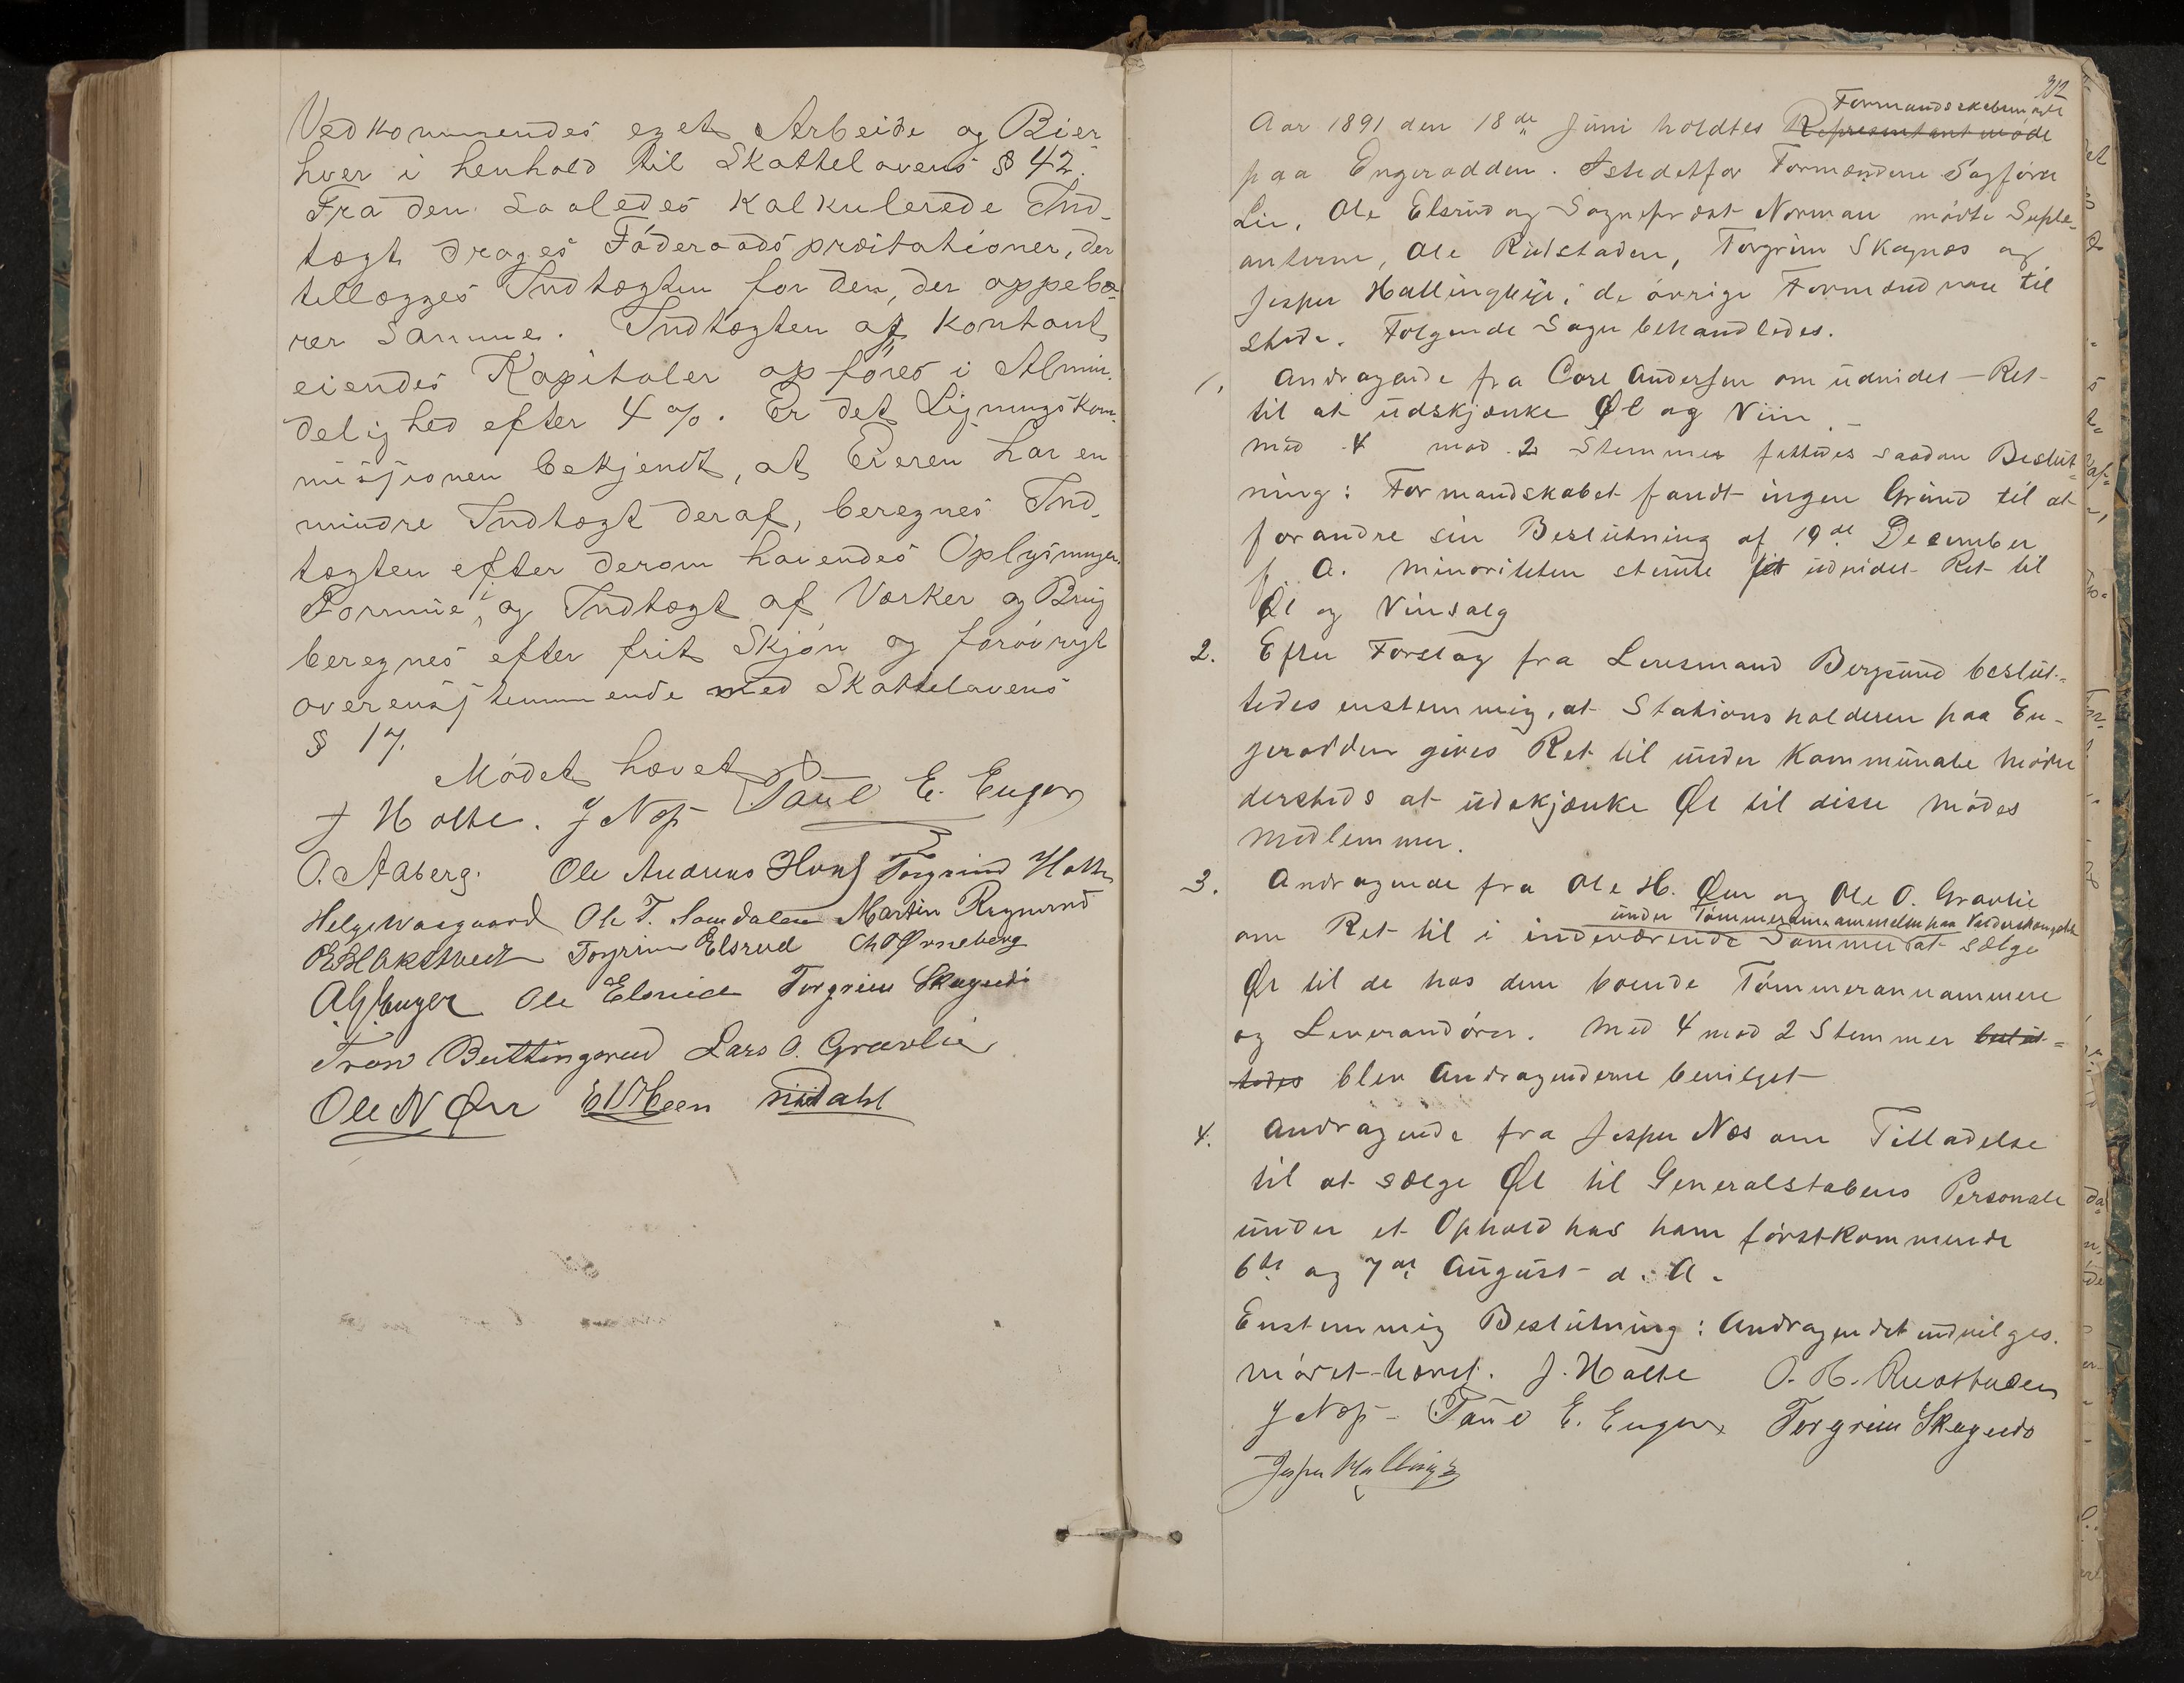 Vedkommendes eget Arbeide og Bier-
hver i henhold til Skattelovens § 42.
Fra den saaledes kalkulerede Ind-
tægt drages Föderaadspræstationer, der
tillægges Indtægten for den, der oppebæ-
rer samme. Indtægten af kontant
eiendes Kapitaler opföres i Almin-
delighed efter 4 %. Er det Ligningskom-
missionen bekjendt, at Eieren har en
mindre Indtægt deraf, beregnes Ind-
tægten efter derom havendes Oplysninger.
Formue, og Indtægt af Værker og Brug
beregnes efter frit Skjön og forövrigt
overensstemmende med Skattelovens
§ 17.
Mödet hævet
J Holte. J Næss Paul E. Enger
O. Aaberg. Ole Andreas Torgrim Holte
Helge Ole T. Somdalen Martin
Torgrim Elsrud Ch Ørneberg
A G Enger Ole Elsrud Torgrim Skagnæs
Tron Buttingsrud Lars O. Gravlie
Ole N Øen Dahl
312
Formandskabsmöde
Aar 1891 den 18de Juni holdtes Representantmöde
paa Engerodden. Istedetfor Formændene Sagförer
Lie, Ole Elsrud og Sognepræst Norman mödte Suple-
anterne, Ole Rustaden, Torgrim Skagnæs og
Jesper Hallingbye; de övrige Formænd vare til
stede. Fölgende Sager behandledes.
1. Andragende fra Carl Andersen om udvidet Ret
til at udskjænke Øl og Viin.
med 4 mod 2 Stemmer fattedes saadan Beslut-
ning: Formandskabet fandt ingen Grund til at
forandre sin Beslutning af 19de December
f. A. Minoriteten stemte for udvidet Ret til
Øl og Vinsalg
2. Efter Forslag fra Lensmand Bergsund beslut-
tedes enstemmig, at Stationsholderen paa En-
gerodden gives Ret til under Kommunale Möder
dersteds at udskjænke Øl til disse Mödes
Medlemmer.
3. Andragende fra Ole H. Øen og Ole O. Gravlie
under Tömmerannammelsen paa
om Ret til i indeværende Sommer at sælge
Øl til de hos dem boende Tömmerannammere
og Leverandörer. Med 4 mod 2 Stemmer beslut-
tedes blev Andragenderne bevilget
4. Andragende fra Jesper Næs om Tilladelse
til at sælge Øl til Generalstabens Personale
under et Ophold hos ham förstkommende
6te og 7de August d. A.
Enstemmig Beslutning: Andragendet indvilges.
Mödet hævet. J. Holte O. H. Rustaden
J Næss Paul E. Enger Torgrim Skagnæs
Jesper Hallingby